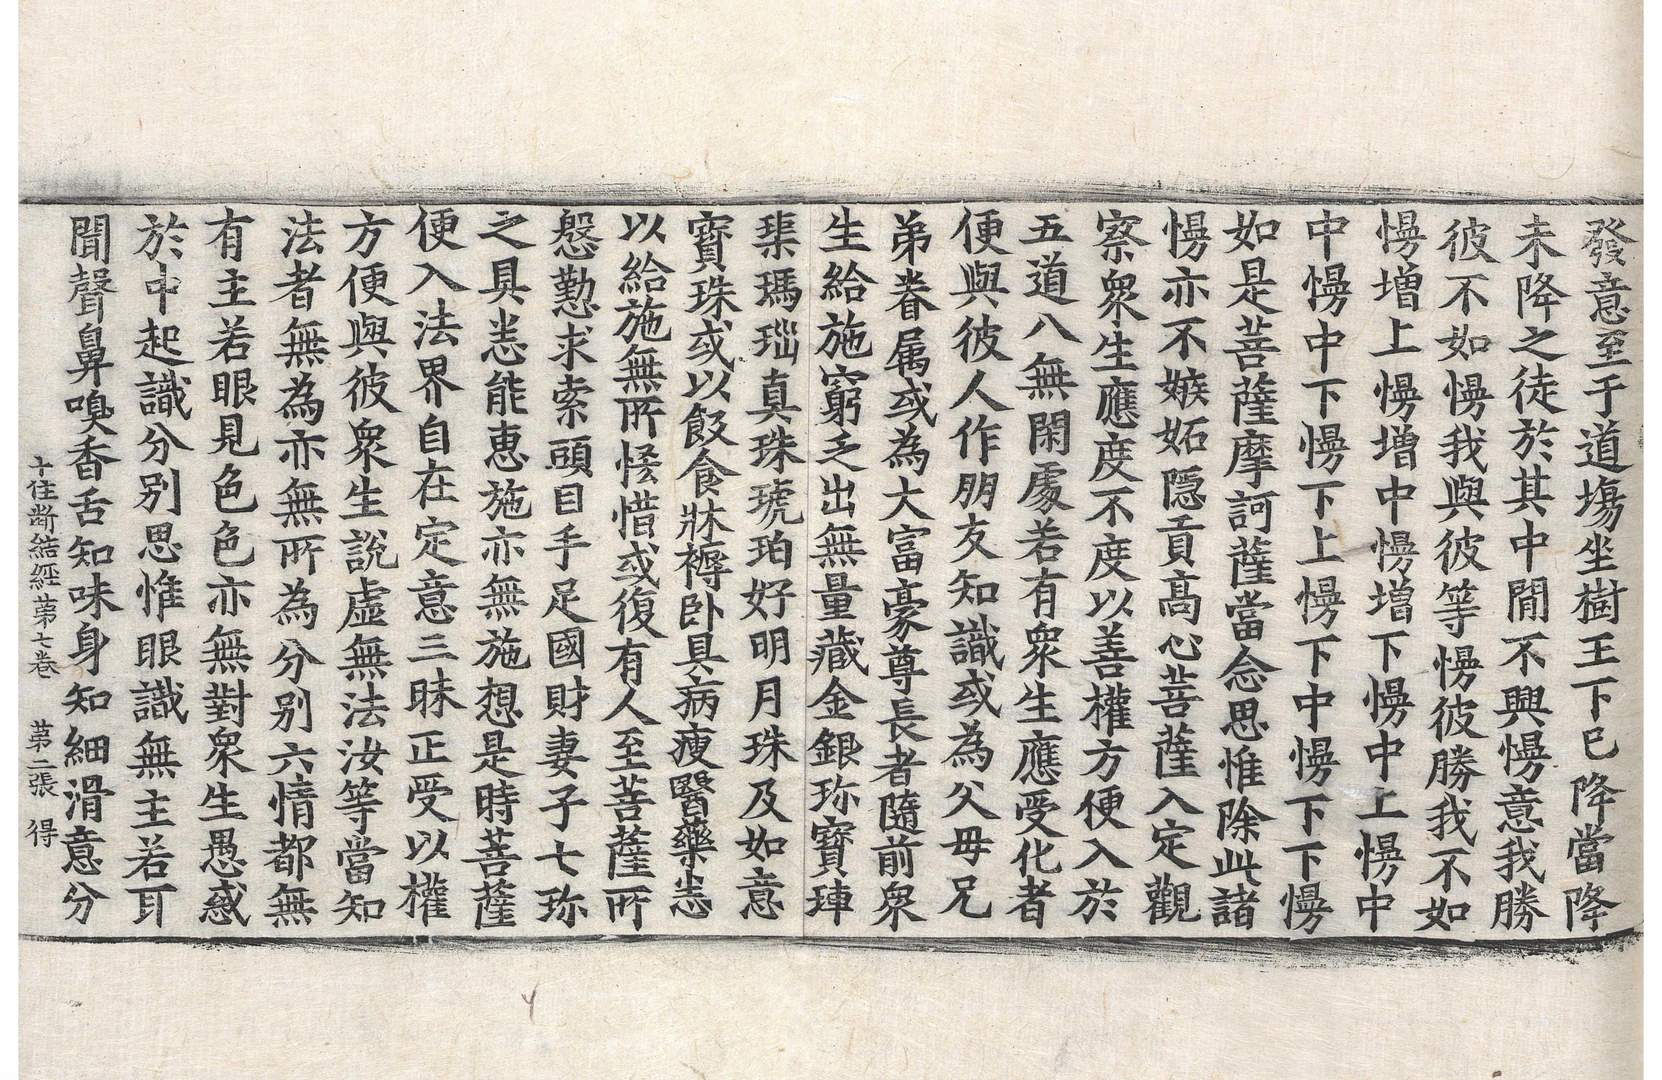 發意至于道場坐樹王下已降當降
未降之徒於其中間不興慢意我勝
彼不如慢我與彼等慢彼勝我不如
慢增上慢增中慢增下慢中上慢中
中慢中下慢下上慢下中慢下下慢
如是菩薩摩訶薩當念思惟除此諸
慢亦不嫉妬隱貢髙心菩薩入定觀
察衆生應度不度以善權方便入於
五道八無閑處若有衆生應受化者
便與彼人作朋友知識或為父母兄
弟眷属或為大富豪尊長者隨前衆
生給施窮乏出無量藏金銀珎寶琗
璖瑪瑙真珠琥珀好明月珠及如意
寶珠或以飯食牀褥卧具病瘦醫藥悉
以給施無所悋惜或復有人至菩薩所
慇懃求索頭目手足國財妻子七珎
之具悉能惠施亦無施想是時菩薩
便入法界自在定意三昧正受以權
方便與彼衆生說虛無法汝等當知
法者無為亦無所為分別六情都無
有主若眼見色色亦無對衆生愚惑
於中起識分別思惟眼識無主若耳
聞聲鼻嗅香舌知味身知細滑意分
十住斷結經第七卷 第二張 得